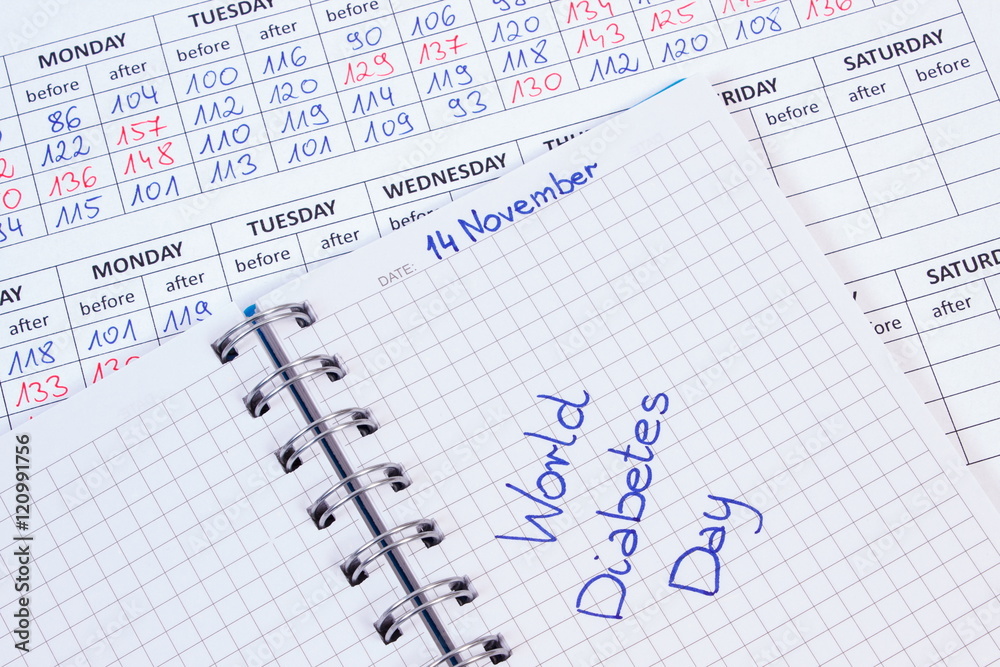 MONDAY TUESDAY
before after before after before
86 104 100 116 90 106 98 134
122 157 112 120 129 137 118 143 125 108 136
136 148 110 119 114 119 130 112 120
115 101 113 101 109 93
MONDAY TUESDAY WEDNESDAY
before after before after
after
101 119
118
133
SATURDAY
before after before
after
14 November
DATE:
World
Diabetes
Day
Adobe Stock | #120991756